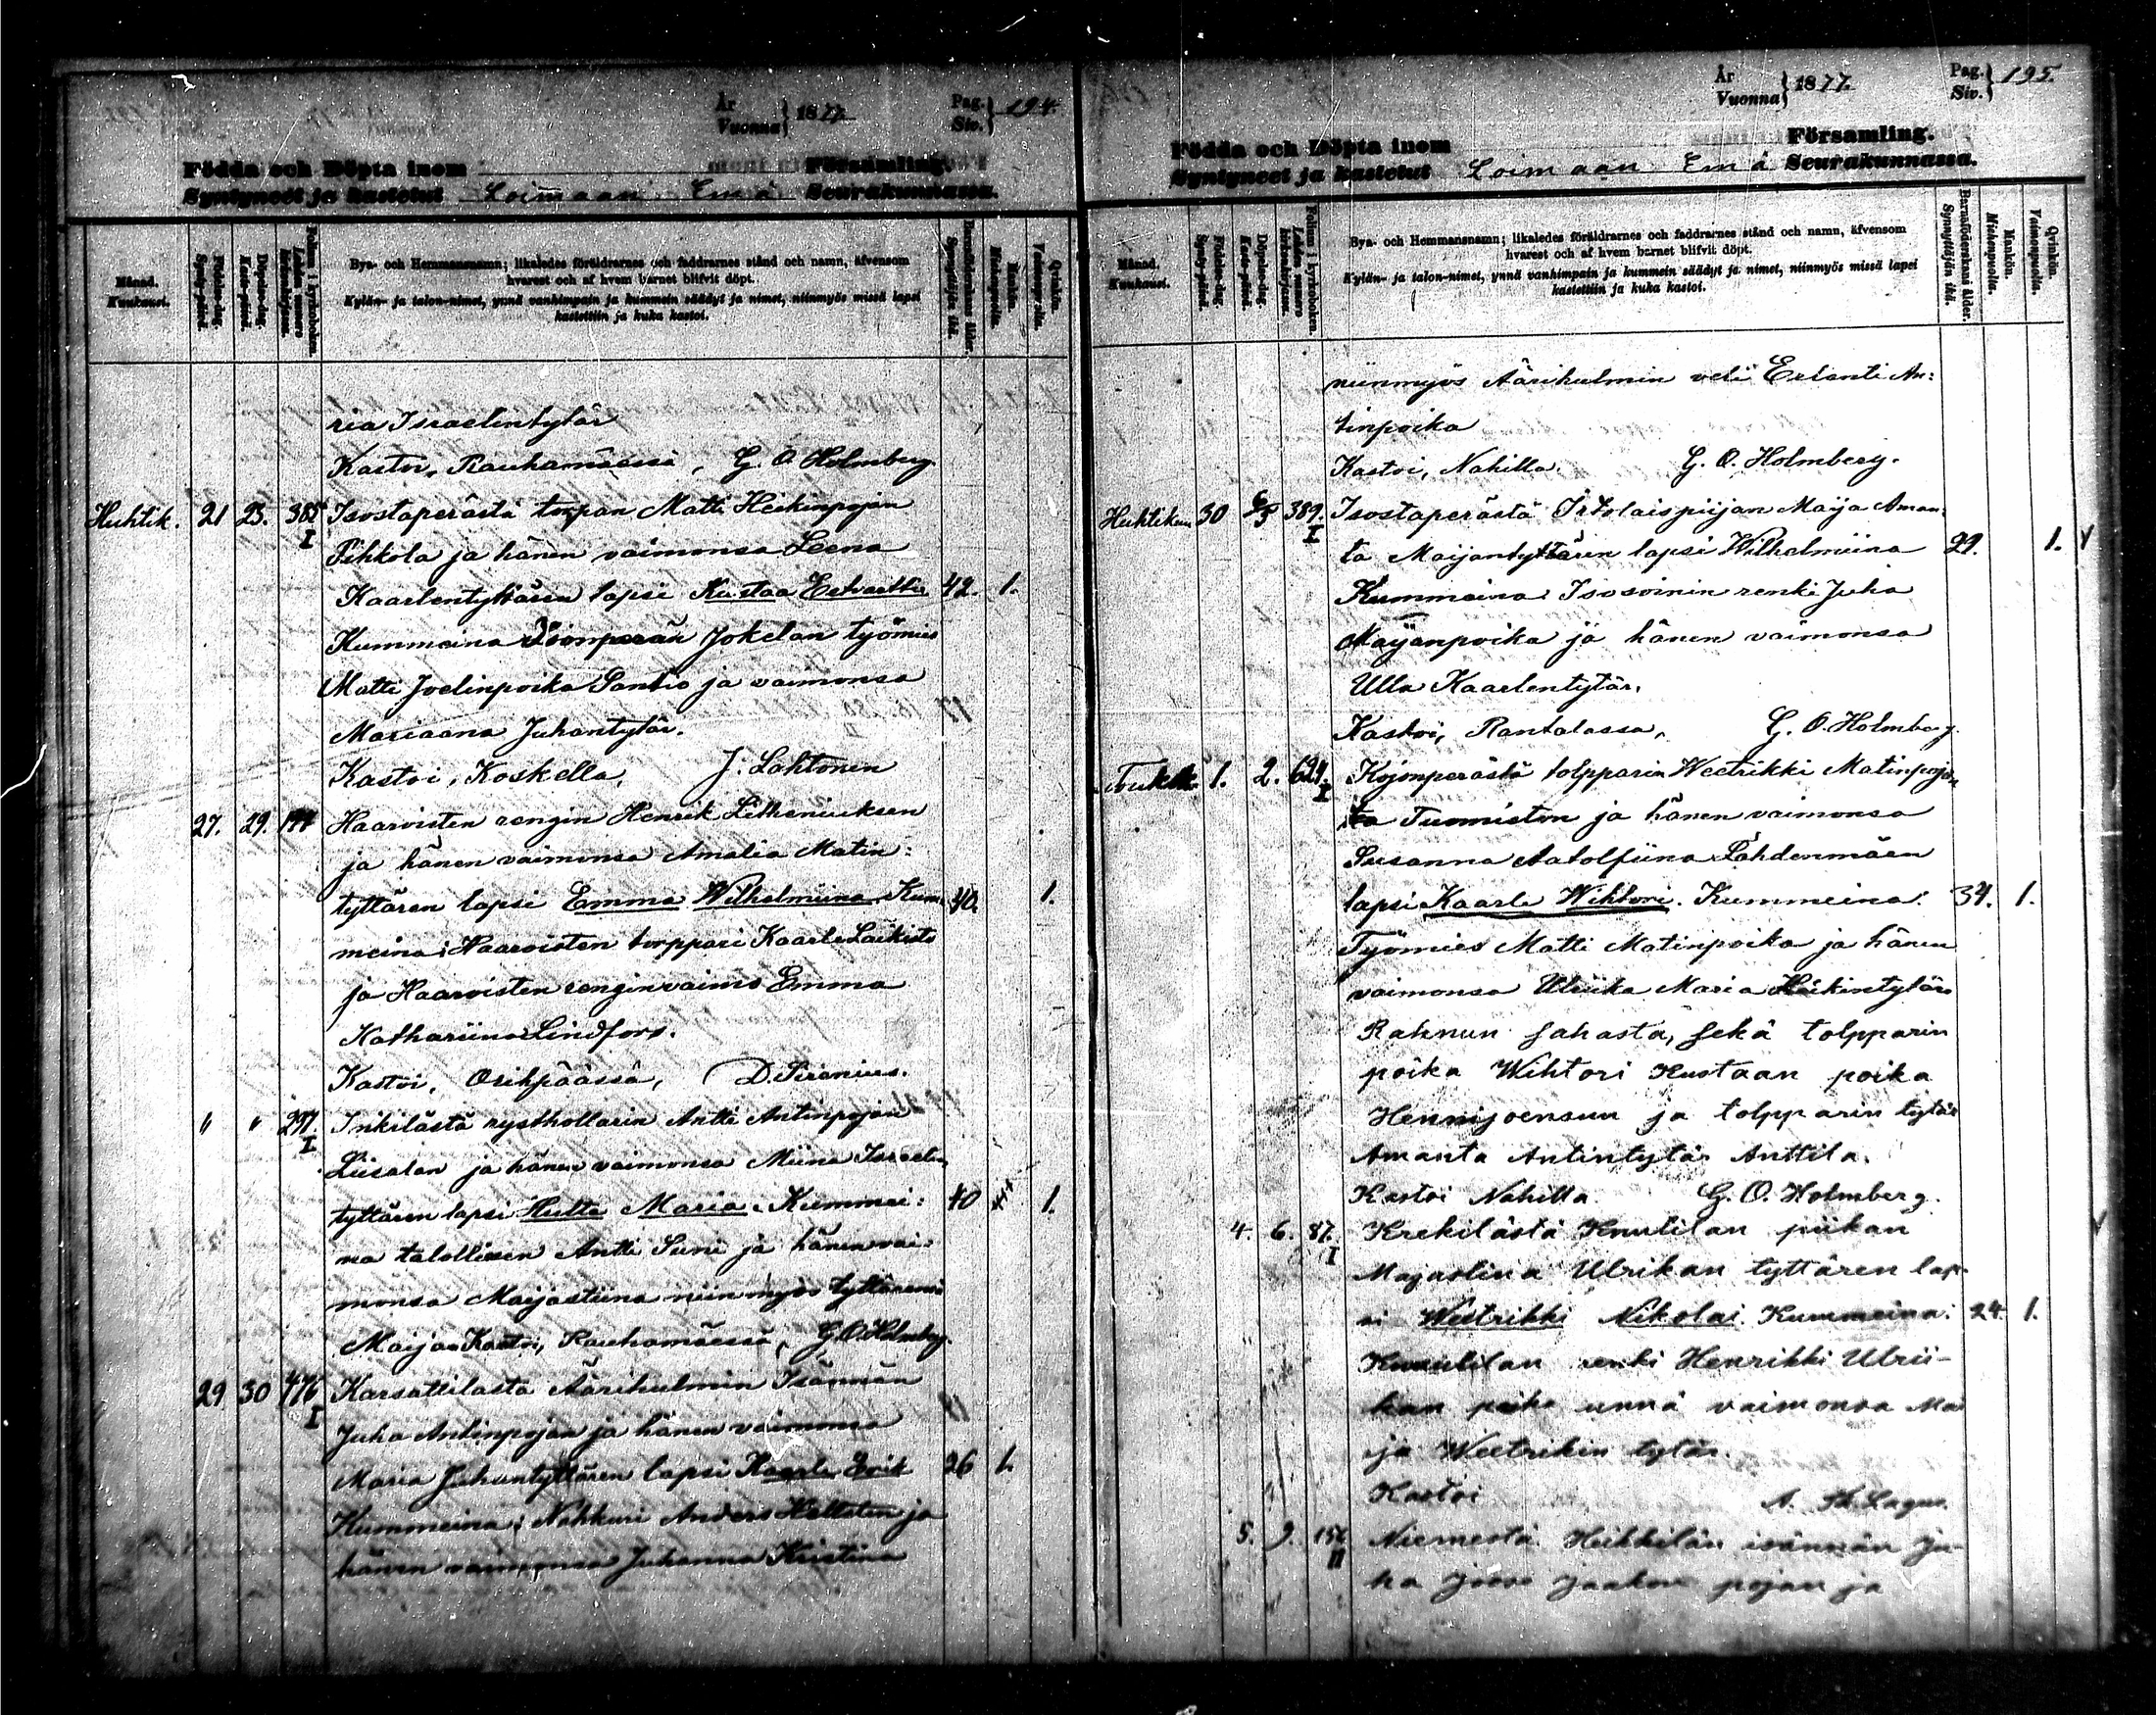 År
Vuonna } 1877
Pag.
Siv. } 194.
Födda och Döpta inom Församling.
Syntyneet ja kastetut Loimaan Emä Seurakunnassa.
Månad.
Kuukausi.
Födelse-dag.
Synty-päivä.
Döpelse-dag.
Kaste-päivä.
Folium i kyrkoboken.
Lehden numero kirkonkirjassa.
Bya- och Hemmansnamn; likaledes föräldrarnes och faddrarnes stånd och namn, äfvensom
hvarest och af hvem barnet blifvit döpt.
Kylän- ja talon-nimet, ynnä vanhimpain ja kummein säädyt ja nimet, niinmyös missä lapsi
kastettiin ja kuka kastoi.
Barnföderskans ålder.
Synnyttäjän ikä.
Mankön.
Miehenpuolia.
Qvinkön.
Vaimonpuolia.
ria Israelintytär
Kastoi, Rauhamäessä, G. O. Holmberg.
Huhtik. 21 23. 385 Isostaperästä torpan Matti Heikinpojan
I Pihkola ja hänen vaimonsa Leena
Kaarlentyttären lapsi Kustaa Edvartti 42. 1.
Kummeina Jokelan työmies
Matti Joelinpoika Santio ja vaimonsa
Mariaana Juhantytär.
Kastoi, Koskella, J. Lahtonen
27. 29. Haaroisten rengin Henrik Litheniuksen
ja hänen vaimonsa Amalia Matin:
tyttären lapsi Emma Wilhelmiina. Kum: 40. 1.
meina: Haaroisten torppari Kaarle Laikisto
ja Haaroisten renginvaimo Emma
Kathariina Lindfors.
Kastoi, Orihpäässä, D. Sirenius.
" " 297. Inkilästä rysthollarin Antti Antinpojan
I Liisalan ja hänen vaimonsa Miina Israelin
tyttären lapsi Hulta Maria. Kummei: 40 1.
na talollisen Antti Suni ja hänen vai:
monsa Maijastiina niin myös tyttärensä
Maija. Kastoi, Rauhamäessä, G. O. Holmberg.
29 30 476 Karsattilasta Äärihulmin Isännän
I Juha Antinpojan ja hänen vaimonsa
Maria Juhantyttären lapsi Kaarle Erik 26 1.
Kummeina: Nahkuri Anders Hellsten ja
hänen vaimonsa Juhanna Kristina
År
Vuonna } 1877.
Pag.
Siv. } 195.
Födda och Döpta inom Församling.
Syntyneet ja kastetut Loimaan Emä Seurakunnassa.
Månad.
Kuukausi.
Födelse-dag.
Synty-päivä.
Döpelse-dag.
Kaste-päivä.
Folium i kyrkoboken.
Lehden numero kirkonkirjassa.
Bya- och Hemmansnamn; likaledes föräldrarnes och faddrarnes stånd och namn, äfvensom
hvarest och af hvem barnet blifvit döpt.
Kylän- ja talon-nimet, ynnä vanhimpain ja kummein säädyt ja nimet, niinmyös missä lapsi
kastettiin ja kuka kastoi.
Barnföderskans ålder.
Synnyttäjän ikä.
Mankön.
Miehenpuolia.
Qvinkön.
Vaimonpuolia.
niinmyös Äärihulmin veli Erlanti An:
tinpoika
Kastoi, Nahilla. G. O. Holmberg.
Huhtikuu 30 6/5 389. Isostaperästä Irtolaispiijan Maija Aman:
I ta Maijantyttären lapsi Wilhelmiina 29. 1. v
Kummeina Isosoinin renki Juha
Maijanpoika ja hänen vaimonsa
Ulla Kaarlentytär.
Kastoi, Rantalassa, G. O. Holmberg.
Toukok. 1. 2. 621. Kojonperästä tolpparin Weetrikki Matinpojan
I Tuomiston ja hänen vaimonsa
Susanna Aatolfiina Lähdenmäen
lapsi Kaarle Wihtori. Kummeina: 34. 1.
Työmies Matti Matinpoika ja hänen
vaimonsa Ulriika Maria Heikintytär
Raknun sahasta, sekä tolpparin
poika Wihtori Kustaan poika
Hennijoensuu ja tolpparin tytär
Amanta Antintytär Anttila.
Kastoi Nahilla G. O. Holmberg.
4. 6. 87. Krekilästä Knutilan piikan v
I Majastina Ulrikan tyttären lap-
si Weetrikki Nikolai. Kummeina: 24. 1.
Knuutilan renki Henrikki Ulrii-
kan poika ynnä vaimonsa Mai
ja Weetrikin tytär.
Kastoi A. Th. Lagus.
5. 9. 156 Niemestä Heikkilän isännän Ju-
II ha Joose Jaakon pojan ja